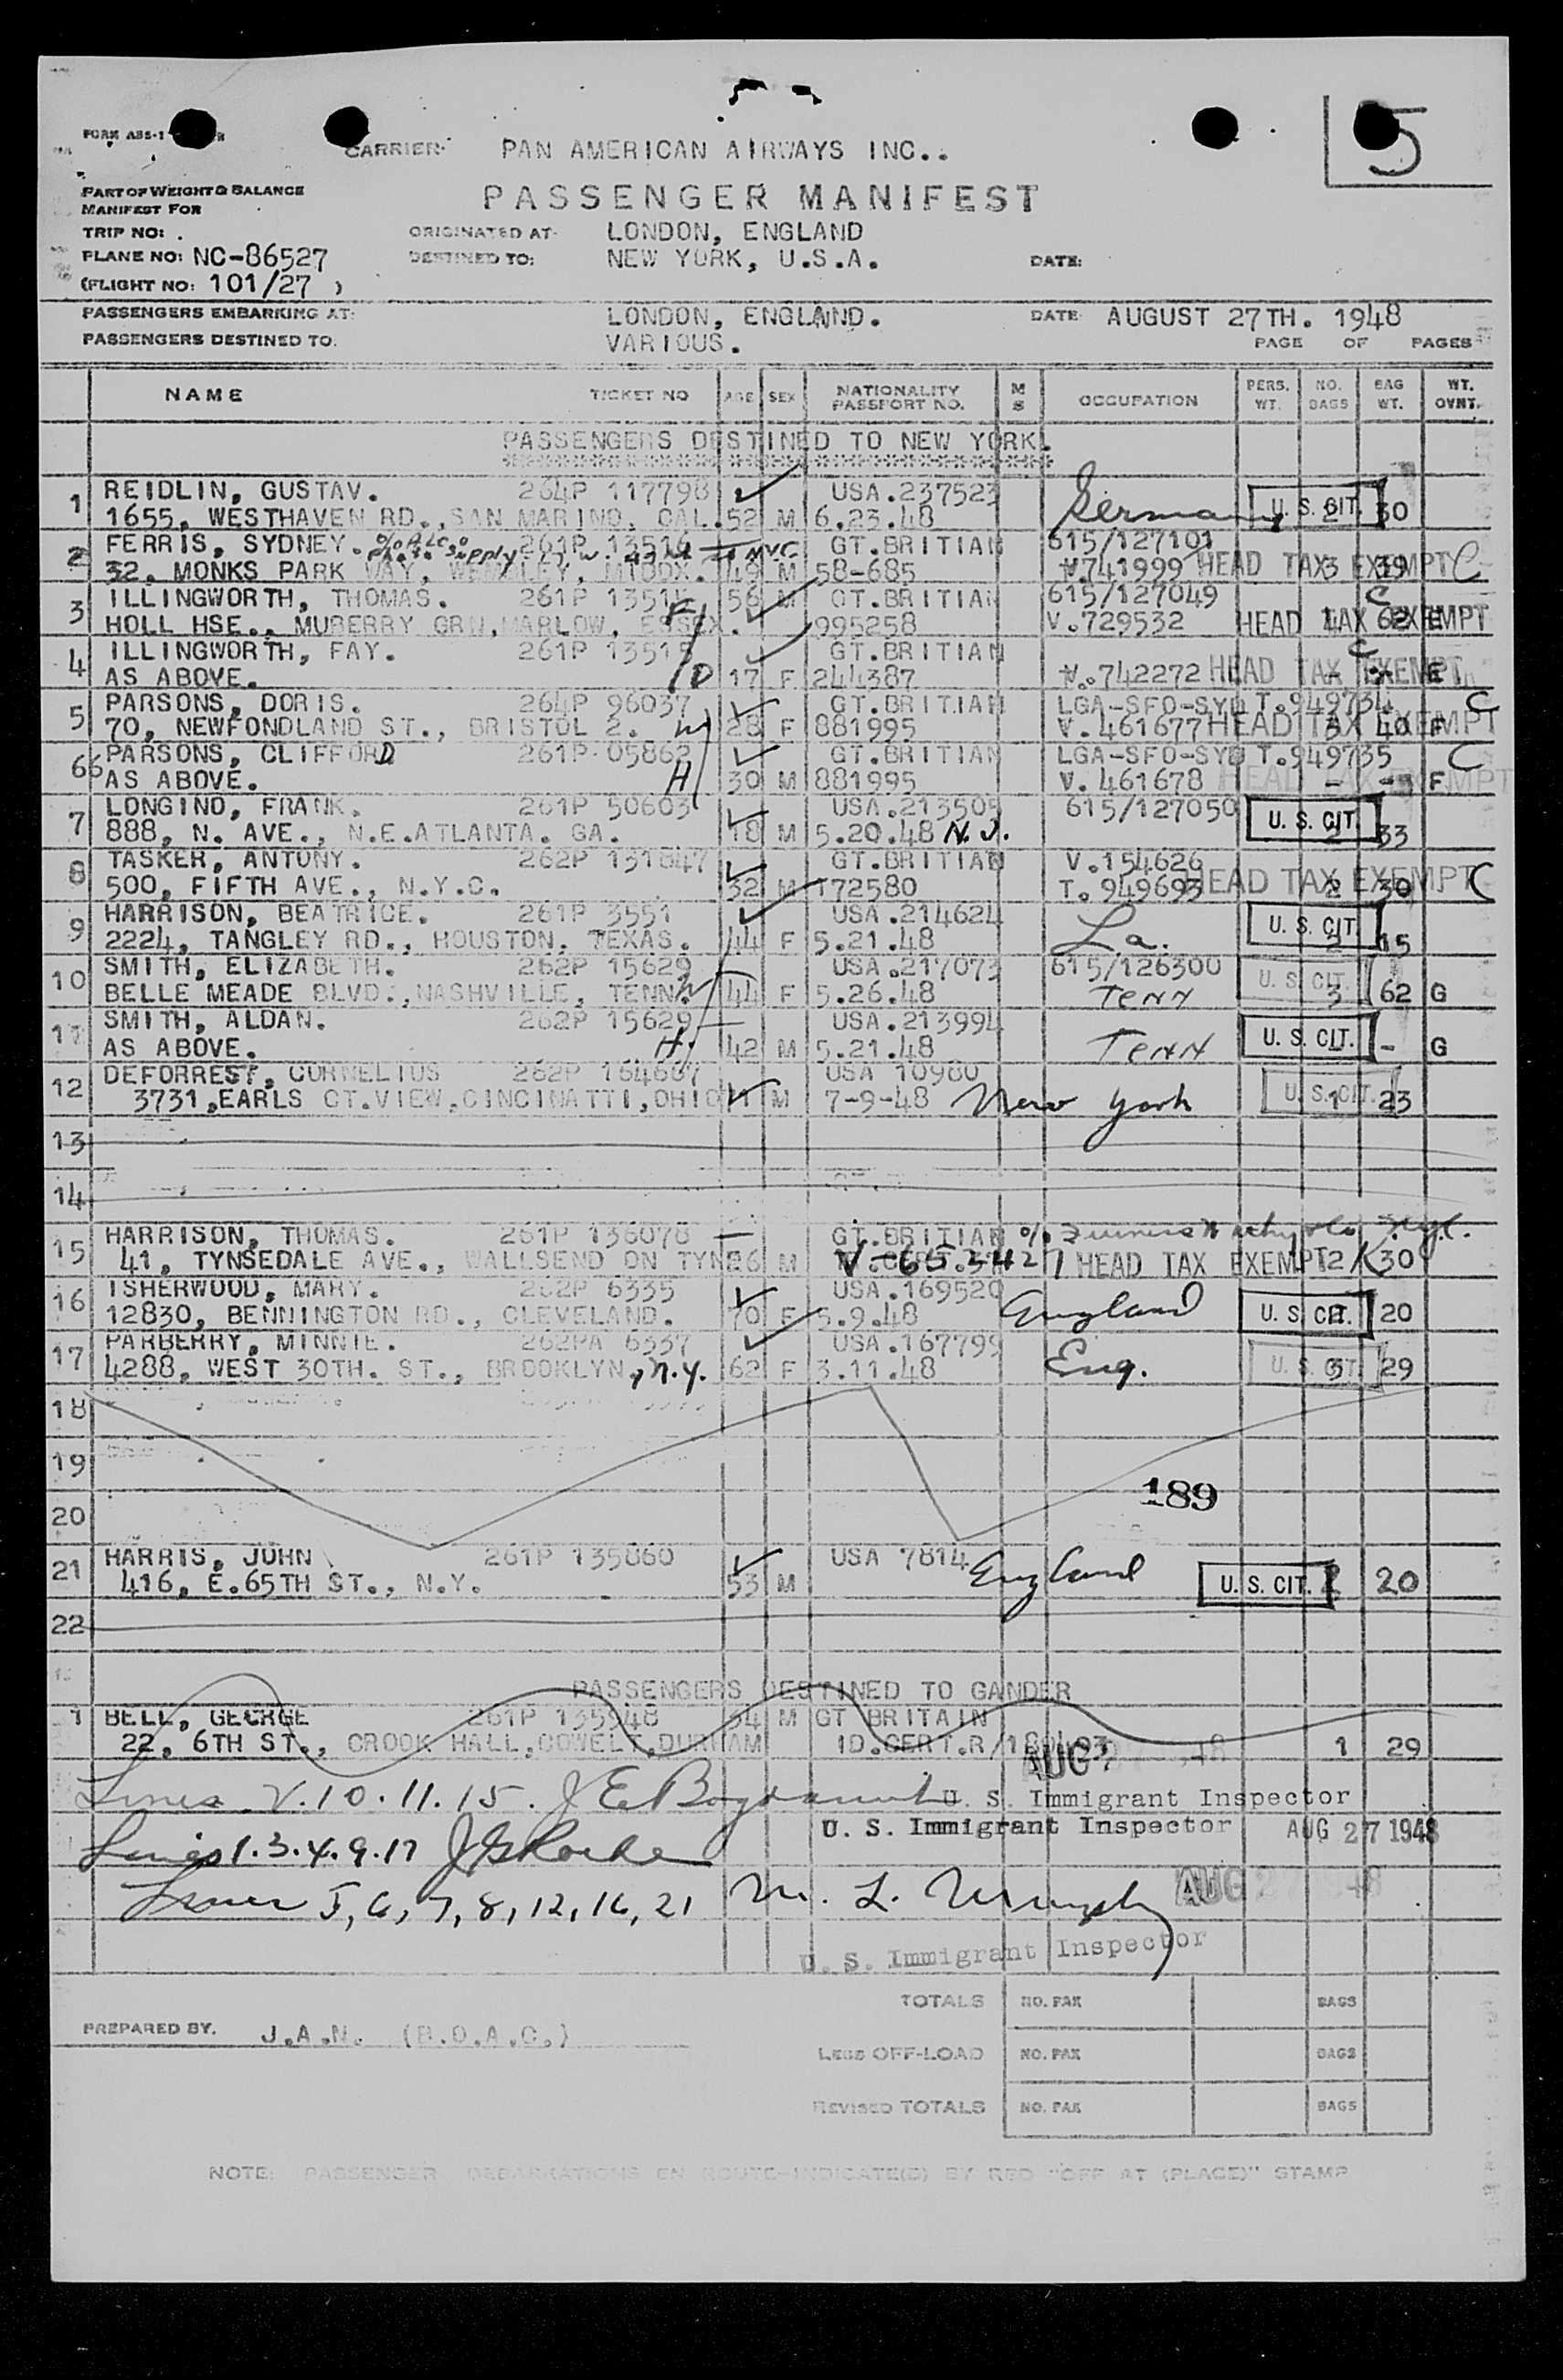 FORM ABS-1
5
CARRIER: PAN AMERICAN AIRWAYS INC..
PART OF WEIGHT & BALANCE
MANIFEST FOR
PASSENGER MANIFEST
TRIP NO: . ORIGINATED AT: LONDON, ENGLAND
PLANE NO: NC-86527 DESTINED TO: NEW YORK, U.S.A. DATE:
(FLIGHT NO: 101/27 )
PASSENGERS EMBARKING AT: LONDON, ENGLAND. DATE AUGUST 27TH. 1948
PASSENGERS DESTINED TO. VARIOUS. PAGE OF PAGES
NAME TICKET NO AGE SEX NATIONALITY PASSPORT NO. M S OCCUPATION PERS. WT. NO. BAGS BAG WT. WT. OVNT.
PASSENGERS DESTINED TO NEW YORK.
1 REIDLIN, GUSTAV. 264P 117798 USA.237523
1655, WESTHAVEN RD., SAN MARINO, CAL. 52 M 6.23.48 Germany U. S. CIT. 2 30
2 FERRIS, SYDNEY. 261P 13514 GT.BRITIAN 615/127101
32, MONKS PARK WAY, WEMBLEY, MIDDX. 49 M 58-685 V.741999 HEAD TAX EXEMPT 3 39 C
3 ILLINGWORTH, THOMAS. 261P 13515 56 M GT.BRITIAN 615/127049 C
HOLL HSE., MUBERRY GRN, HARLOW, ESSEX. F 995258 V.729532 HEAD TAX EXEMPT 62 E
4 ILLINGWORTH, FAY. 261P 13515 GT.BRITIAN C
AS ABOVE. D 17 F 244387 V.742272 HEAD TAX EXEMPT - - E
5 PARSONS, DORIS. 264P 96037 GT.BRITIAN LGA-SFO-SYD T.949734 C
70, NEWFONDLAND ST., BRISTOL 2. W 28 F 881995 V. 461677 HEAD TAX EXEMPT 3 40 F
6 PARSONS, CLIFFORD 261P 05862 GT.BRITIAN LGA-SFO-SYD T.949735 C
AS ABOVE. H 30 M 881995 V. 461678 HEAD TAX EXEMPT - - F
7 LONGINO, FRANK. 261P 50603 USA.213505 615/127050
888, N. AVE., N.E.ATLANTA. GA. 18 M 5.20.48 N.J. U. S. CIT. 2 33
8 TASKER, ANTONY. 262P 131647 GT.BRITIAN V.154626
500, FIFTH AVE., N.Y.C. 32 M 172580 T. 949693 HEAD TAX EXEMPT 2 30 C
9 HARRISON, BEATRICE. 261P 3551 USA.214624
2224, TANGLEY RD., HOUSTON. TEXAS. 44 F 5.21.48 La. U. S. CIT. 2 15
10 SMITH, ELIZABETH. 262P 15629 USA.217073 615/126300
BELLE MEADE BLVD., NASHVILLE, TENN. W 44 F 5.26.48 Tenn U. S. CIT. 3 62 G
11 SMITH, ALDAN. 262P 15629 USA.213994
AS ABOVE. H 42 M 5.21.48 Tenn U. S. CIT. - - G
12 DEFORREST, CORNELIUS 262P 164667 USA 10980
3731,EARLS CT.VIEW,CINCINATTI,OHIO M 7-9-48 New York U. S. CIT. 1 23
13
14
15 HARRISON, THOMAS. 261P 136078 GT.BRITIAN
41, TYNSEDALE AVE., WALLSEND ON TYNE 26 M V-653427 HEAD TAX EXEMPT 2 30
16 ISHERWOOD, MARY. 262P 6335 USA.169520
12830, BENNINGTON RD., CLEVELAND. 70 F 5.9.48 England U. S. CIT. 2 20
17 PARBERRY, MINNIE. 262PA 6337 USA.167799
4288, WEST 30TH. ST., BROOKLYN, N.Y. 62 F 3.11.48 Eng. U. S. CIT. 3 29
18
19
189
20
21 HARRIS, JOHN 261P 135860 USA 7814
416, E.65TH ST., N.Y. 53 M England U. S. CIT. 2 20
22
PASSENGERS DESTINED TO GANDER
1 BELL, GEORGE 261P 135948 34 M GT BRITAIN
22, 6TH ST., CROOK HALL, DURHAM ID.CERT.R/ 1 29
AUG 27 1948
Lines 2.10.11.15. U. S. Immigrant Inspector
U. S. Immigrant Inspector AUG 27 1948
Lines 1.3.4.9.17
Lines 5,6,7,8,12,16,21 M. L. Murphy AUG 27 1948
U. S. Immigrant Inspector
TOTALS NO. PAX BAGS
PREPARED BY. J.A.N. (B.O.A.C.)
LESS OFF-LOAD NO. PAX BAGS
REVISED TOTALS NO. PAX BAGS
NOTE: PASSENGER DEBARKATIONS EN ROUTE-INDICATE(D) BY RED "OFF AT (PLACE)" STAMP